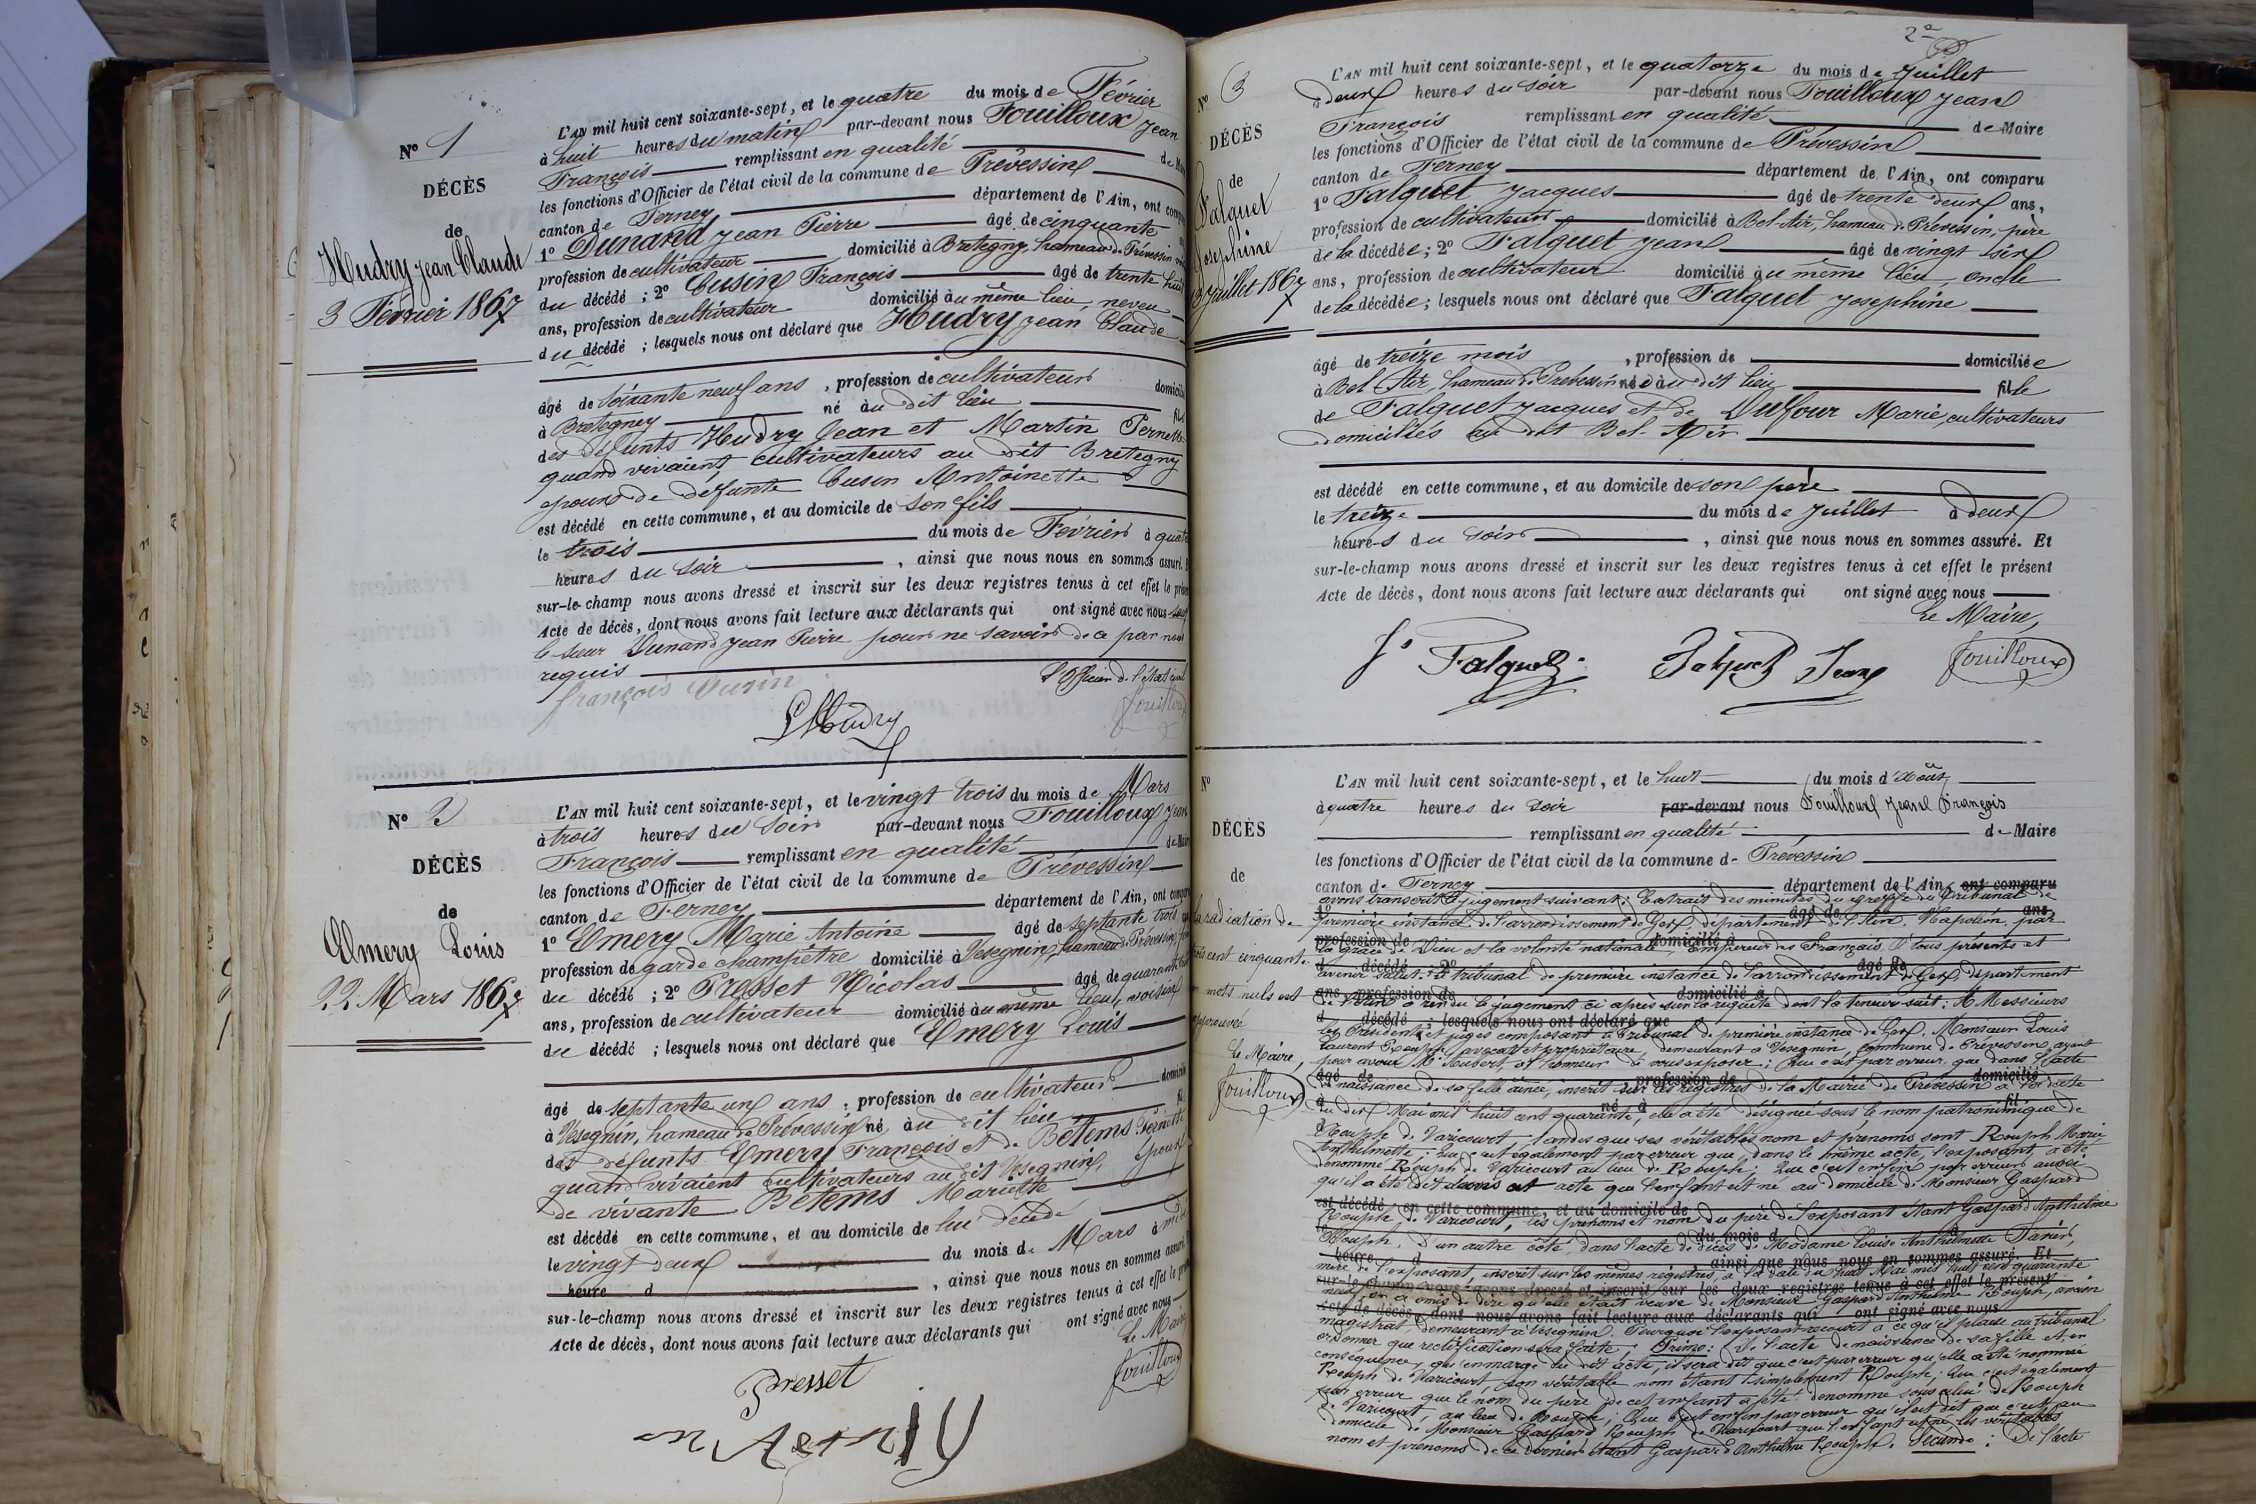 Nº 1
DÉCÈS
de
Hudry Jean Claude
3 Février 1867
L'AN mil huit cent soixante-sept, et le quatre du mois de Février
à huit heures du matin par-devant nous Fouilloux Jean
François remplissant en qualité de
les fonctions d'Officier de l'état civil de la commune de Prévessin
canton de Ferney département de l'Ain, ont
1º Dunand Jean Pierre âgé de cinquante
profession de cultivateur domicilié à Bretegny, hameau de Prévessin
du décédé ; 2º Cusin François âgé de trente huit
ans, profession de cultivateur domicilié au même lieu, neveu
du décédé ; lesquels nous ont déclaré que Hudry Jean Claude
âgé de soixante neuf ans, profession de cultivateur
à Bretegney né au dit lieu
des défunts Hudry Jean et Martin Pernette
quand vivaient cultivateurs au dit Bretegny
époux de défunte Cusin Antoinette
est décédé en cette commune, et au domicile de son fils
le trois du mois de Février à
heures du soir, ainsi que nous nous en sommes assuré.
sur-le-champ nous avons dressé et inscrit sur les deux registres tenus à cet effet le
Acte de décès, dont nous avons fait lecture aux déclarants qui ont signé avec nous sauf
le sieur Dunand Jean Pierre pour ne savoir de ce par nous
requis
L'Officier de l'état civil
françois Cusin
Hudry
Fouilloux
Nº 2
DÉCÈS
de
Emery Louis
22 Mars 1867
L'AN mil huit cent soixante-sept, et le vingt trois du mois de Mars
à trois heures du soir par-devant nous Fouilloux Jean
François remplissant en qualité
les fonctions d'Officier de l'état civil de la commune de Prévessin
canton de Ferney département de l'Ain, ont
1º Emery Marie Antoine âgé de septante trois
profession de garde champêtre domicilié à Vesegnin, hameau de Prévessin
du décédé ; 2º Presset Nicolas âgé de
ans, profession de cultivateur domicilié au même lieu, voisin
du décédé ; lesquels nous ont déclaré que Emery Louis
âgé de septante un ans, profession de cultivateur
à Vesegnin, hameau de Prévessin né au dit lieu
des défunts Emery François et de Bétems Pernette
quand vivaient cultivateurs au dit Vesegnin, époux
de vivante Bétems Mariette
est décédé en cette commune, et au domicile de lui décédé
le vingt deux du mois de Mars à
heure d, ainsi que nous nous en sommes assuré.
sur-le-champ nous avons dressé et inscrit sur les deux registres tenus à cet effet le
Acte de décès, dont nous avons fait lecture aux déclarants qui ont signé avec nous
Le Maire
Presset
Fouilloux
2e
Nº 3
DÉCÈS
de
Falquet
Josephine
13 Juillet 1867
L'AN mil huit cent soixante-sept, et le quatorze du mois de Juillet
à deux heures du soir par-devant nous Fouilloux Jean
François remplissant en qualité de Maire
les fonctions d'Officier de l'état civil de la commune de Prévessin
canton de Ferney département de l'Ain, ont comparu
1º Falquet Jacques âgé de trente deux ans,
profession de cultivateur domicilié à Bel-Air, hameau de Prévessin, père
de la décédée ; 2º Falquet Jean âgé de vingt six
ans, profession de cultivateur domicilié au même lieu, oncle
de la décédée ; lesquels nous ont déclaré que Falquet Josephine
âgé de treize mois, profession de domiciliée
à Bel-Air, hameau de Prévessin née au dit lieu fille
de Falquet Jacques et de Dufour Marie, cultivateurs
domiciliés au dit Bel-Air
est décédé en cette commune, et au domicile de son père
le treize du mois de Juillet à deux
heures du soir, ainsi que nous nous en sommes assuré. Et
sur-le-champ nous avons dressé et inscrit sur les deux registres tenus à cet effet le présent
Acte de décès, dont nous avons fait lecture aux déclarants qui ont signé avec nous
Le Maire,
Js Falquet
Falquet Jean
Fouilloux
Nº
DÉCÈS
de
la radiation de
trois cent cinquante
mots nuls est
approuvée
Le Maire,
Fouilloux
L'AN mil huit cent soixante-sept, et le huit du mois d'Août
à quatre heures du soir par-devant nous Fouilloux Jean François
remplissant en qualité de Maire
les fonctions d'Officier de l'état civil de la commune de Prévessin
canton de Ferney département de l'Ain, ont comparu
avons transcrit le jugement suivant : Extrait des minutes du greffe du Tribunal de
première instance de l'arrondissement de Gex, département de l'Ain. Napoléon par
la grâce de Dieu et la volonté nationale, Empereur des Français, à tous présents et
avenir salut. Le tribunal de première instance de l'arrondissement de Gex, département
de l'Ain a rendu le jugement ci après sur la requête dont la teneur suit : A Messieurs
les Président et juges composant le Tribunal de première instance de Gex. Monsieur Louis
Laurent Rouph, avocat et propriétaire, demeurant à Vesegnin, commune de Prévessin ayant
pour avoué Me a l'honneur de vous exposer : Que c'est par erreur que dans l'acte
de naissance de sa fille ainée, inscrit sur les registres de la Mairie de Prévessin à la date
du dix Mai mil huit cent quarante, elle a été désignée sous le nom patronimique de
Rouph de Varicourt, tandis que ses véritables nom et prénoms sont Rouph Marie
Anthelmette ; Que c'est également par erreur que, dans le même acte, l'exposant a été
dénommé Rouph de Varicourt au lieu de Rouph ; Que c'est enfin par erreur aussi
qu'il a été dit dans cet acte que l'enfant est né au domicile de Monsieur Gaspard
Rouph de Varicourt, les prénoms et nom du père de l'exposant étant Gaspard Anthelme
Rouph. D'un autre côté, dans l'acte de décès de Madame Louise Anthelmette
mère de l'exposant, inscrit sur les mêmes registres, à la date du huit Mai mil huit cent quarante
neuf, on a omis de dire qu'elle était veuve de Monsieur Gaspard Anthelme Rouph, ancien
magistrat, demeurant à Vesegnin. Pourquoi l'exposant recourt à ce qu'il plaise au tribunal
ordonner que rectification sera faite : Primo : De l'acte de naissance de sa fille et, en
conséquence, qu'en marge du dit acte, il sera dit que c'est par erreur qu'elle a été nommée
Rouph de Varicourt son véritable nom étant simplement Rouph ; Que c'est également
par erreur que le nom du père de cet enfant a été dénommé sous celui de Rouph
de Varicourt, au lieu de Rouph ; Que c'est enfin par erreur qu'il est dit que c'est au
domicile de Monsieur Gaspard Rouph de Varicourt que l'enfant est né les véritables
nom et prénoms de ce dernier étant Gaspard Anthelme Rouph. Secundo : De l'acte